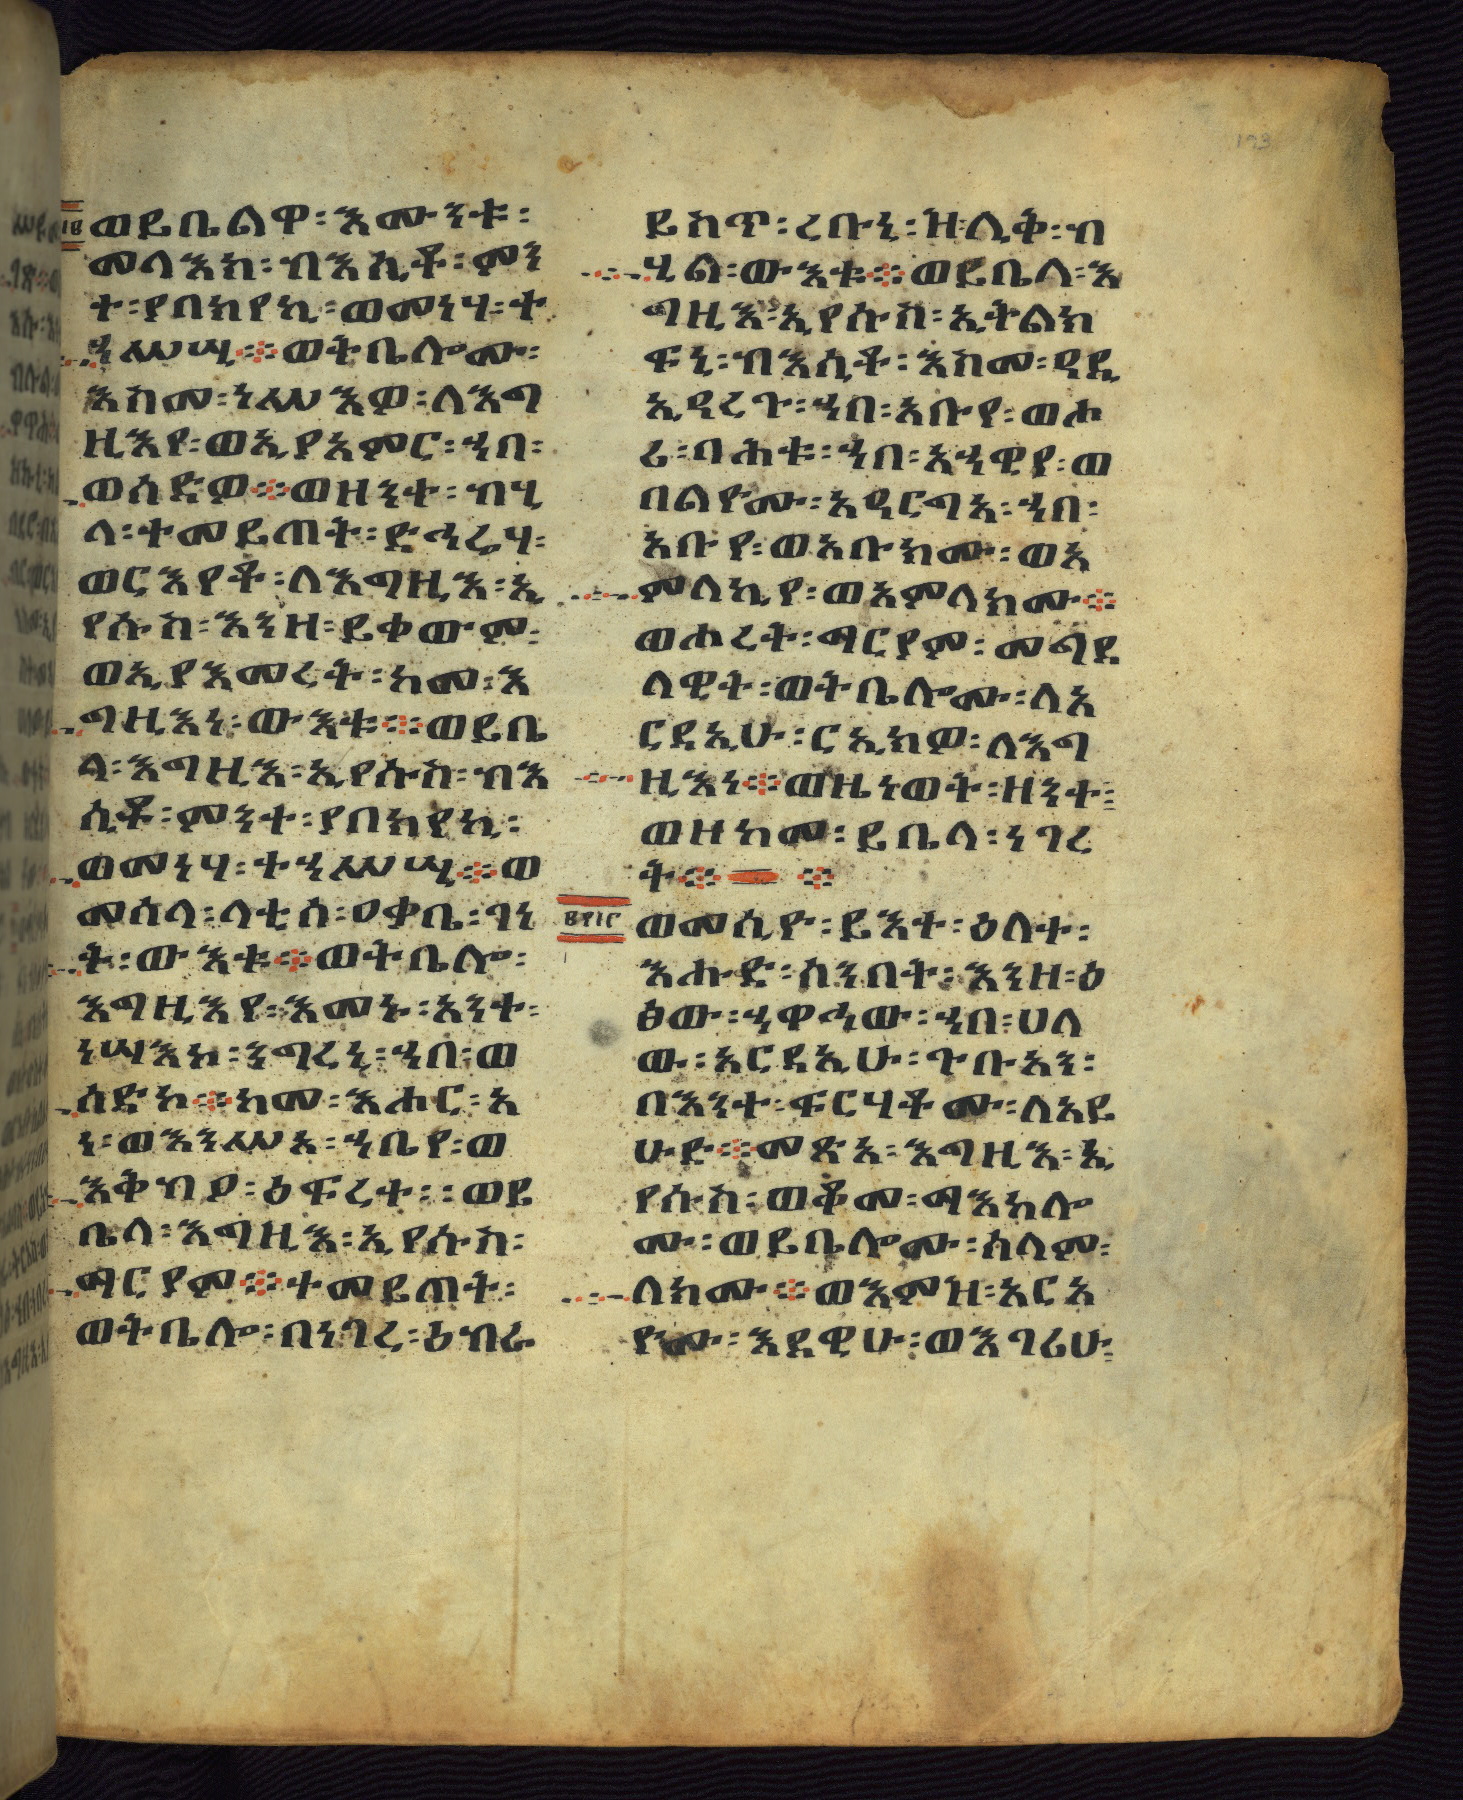 193
፲፪
ወይቤልዋ፡እሙንቱ፡
መላእክ፡ብእሲቶ፡ምን
ተ፡ያበክየኪ፡ወመነሃ፡ተ
ኀሠሢ፨ወትቤሎሙ፡
እስመ፡ነሥእዎ፡ለእግ
ዚእየ፡ወኢያአምር፡ኀበ፡
ወሰድዎ፨ወዘንተ፡ብሂ
ላ፡ተመይጠት፡ድኅሬሃ፡
ወርእየቶ፡ለእግዚእ፡ኢ
የሱስ፡እንዘ፡ይቀውም፡
ወኢያእመረት፡ከመ፡እ
ግዚእነ፡ውእቱ፨ወይቤ
ላ፡እግዚእ፡ኢየሱስ፡ብእ
ሲቶ፡ምንተ፡ያበክየኪ፡
ወመነሃ፡ተኀሠሢ፨ወ
መሰላ፡ላቲሰ፡ዐቃቤ፡ገነ
ት፡ውእቱ፨ወትቤሎ፡
እግዚእየ፡እመኑ፡አንተ፡
ነሣእከ፡ንግረኒ፡ኀበ፡ወ
ሰድከ፨ከመ፡እሐር፡አ
ነ፡ወእንሠአ፡ኀቤየ፡ወ
እቅብዖ፡ዕፍረተ፡፡ወይ
ቤላ፡እግዚእ፡ኢየሱስ፡
ማርያም፨ተመይጠት፡
ወትቤሎ፡በነገረ፡ዕብራ
ይስጥ፡ረቡኒ፡ዝሊቅ፡ብ
ሂል፡ውእቱ፨ወይቤላ፡እ
ግዚእ፡ኢየሱስ፡ኢትልክ
ፍኒ፡ብእሲቶ፡እስመ፡ዓዲ
ኢዓረጉ፡ኀበ፡አቡየ፡ወሑ
ሪ፡ባሕቱ፡ኀበ፡አኀዊየ፡ወ
በልዮሙ፡አዓርግአ፡ኀበ፡
አቡየ፡ወአቡክሙ፡ወአ
ምላኪየ፡ወአምላክሙ፨
ወሐረት፡ማርያም፡መግደ
ላዊት፡ወትቤሎሙ፡ለአ
ርዳኢሁ፡ርኢክዎ፡ለእግ
ዚእነ፨ወዜነወት፡ዘንተ፡
ወዘከመ፡ይቤላ፡ነገረ
ት፨ ፨
፪፻፲፫
ወመሲዮ፡ይእተ፡ዕለተ፡
እሑድ፡ሰንበት፡እንዘ፡ዕ
ፅው፡ኆዋኅው፡ኀበ፡ሀለ
ዉ፡አርዳኢሁ፡ጉቡአን፡
በእንተ፡ፍርሃቶሙ፡ለአይ
ሁድ፨መጽአ፡እግዚእ፡ኢ
የሱስ፡ወቆመ፡ማእከሎ
ሙ፡ወይቤሎሙ፡ሰላም፡
ለክሙ፨ወእምዝ፡አርአ
የሙ፡እደዊሁ፡ወእገሪሁ፡